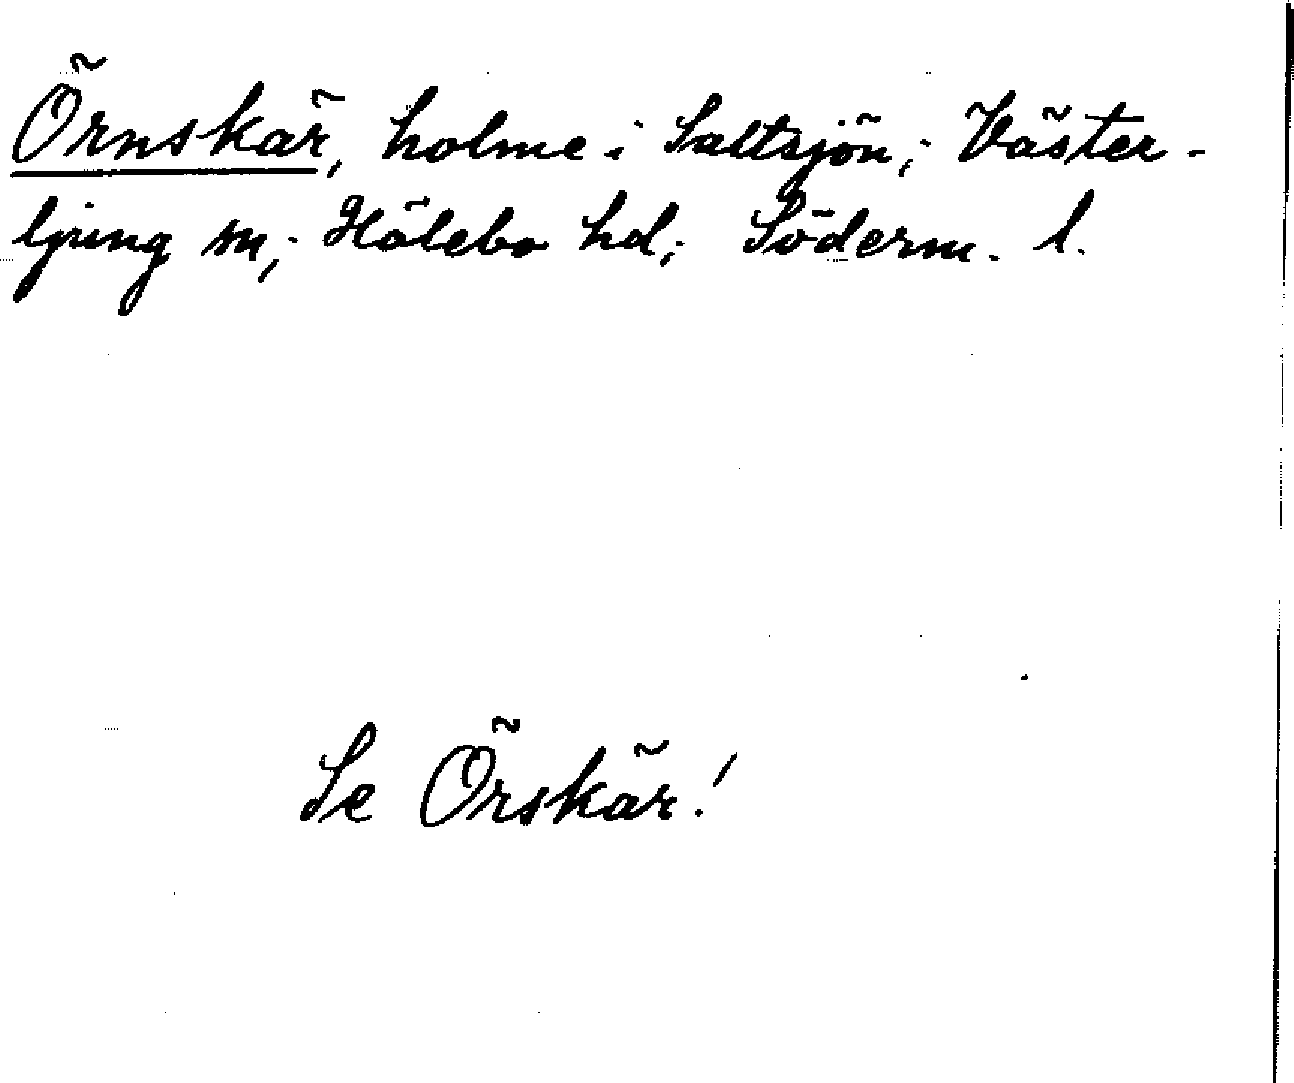 Örnskär, holme i Saltsjön, i Väster-
ljung sn, i Hölebo hd, i Söderm. l.
Se Örskär!